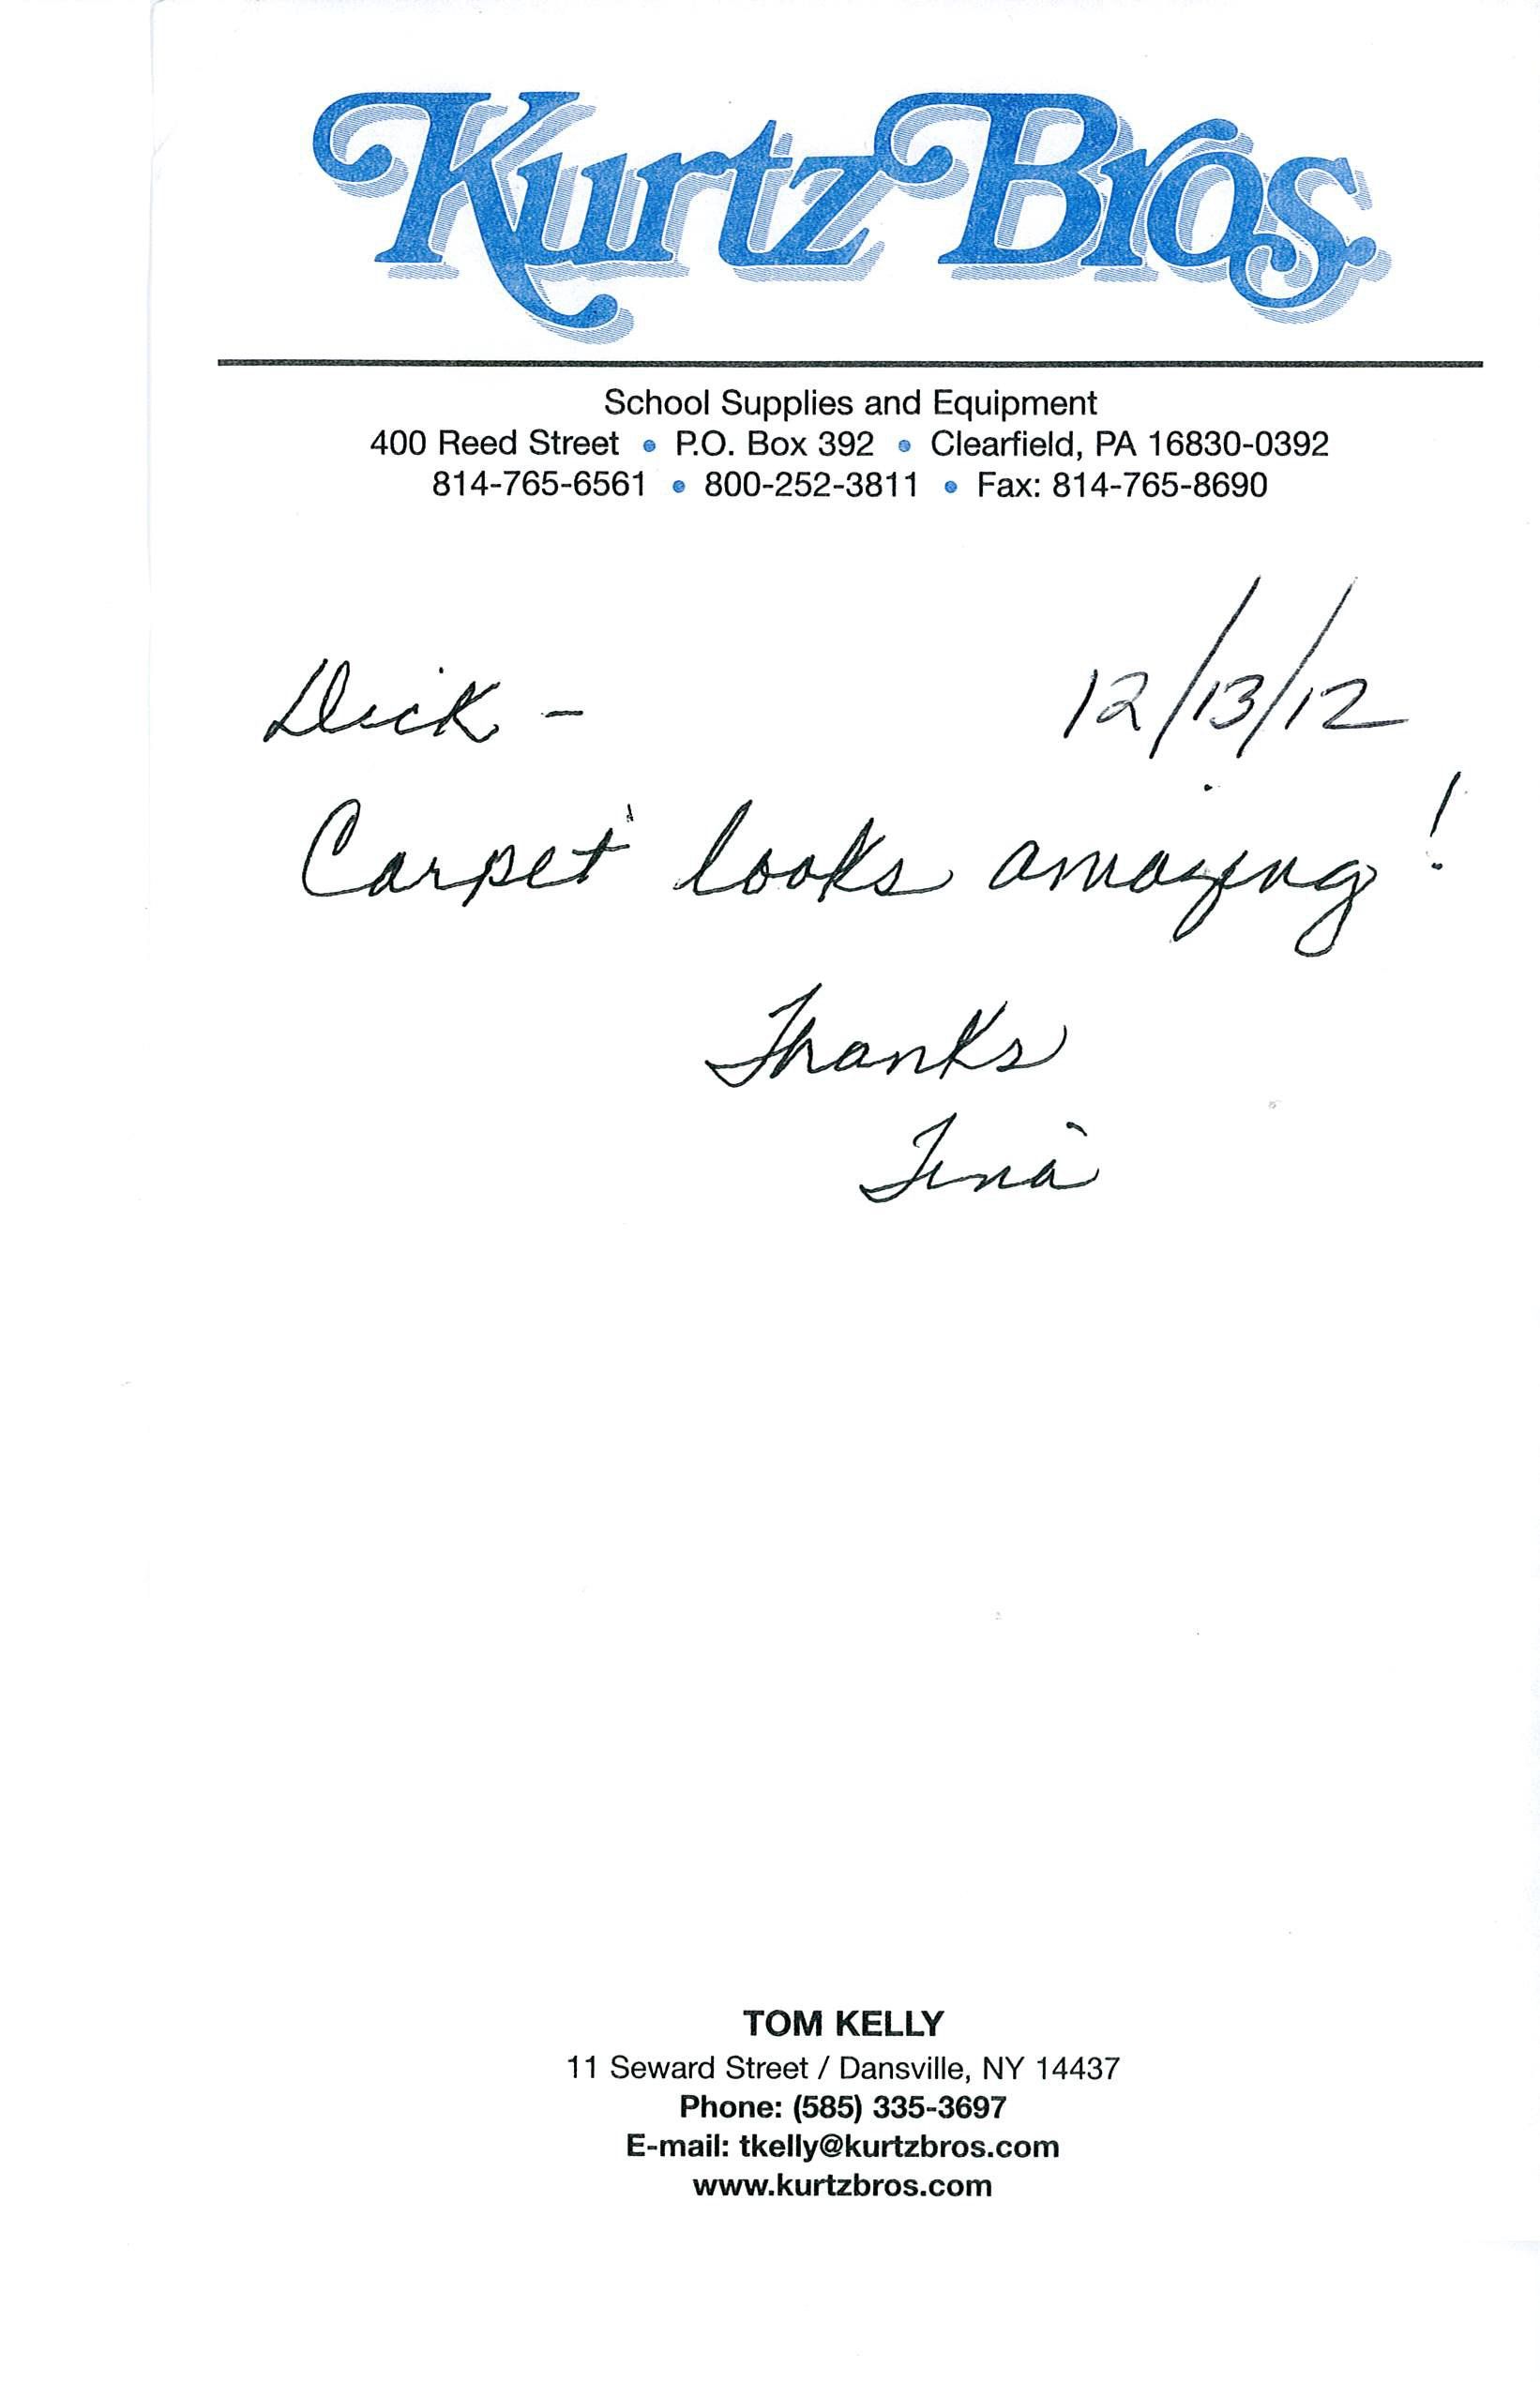 Kurtz Bros.
School Supplies and Equipment
400 Reed Street • P.O. Box 392 • Clearfield, PA 16830-0392
814-765-6561 • 800-252-3811 • Fax: 814-765-8690
Dick - 12/13/12
Carpet looks amazing!
Thanks
Tina
TOM KELLY
11 Seward Street / Dansville, NY 14437
Phone: (585) 335-3697
E-mail: tkelly@kurtzbros.com
www.kurtzbros.com